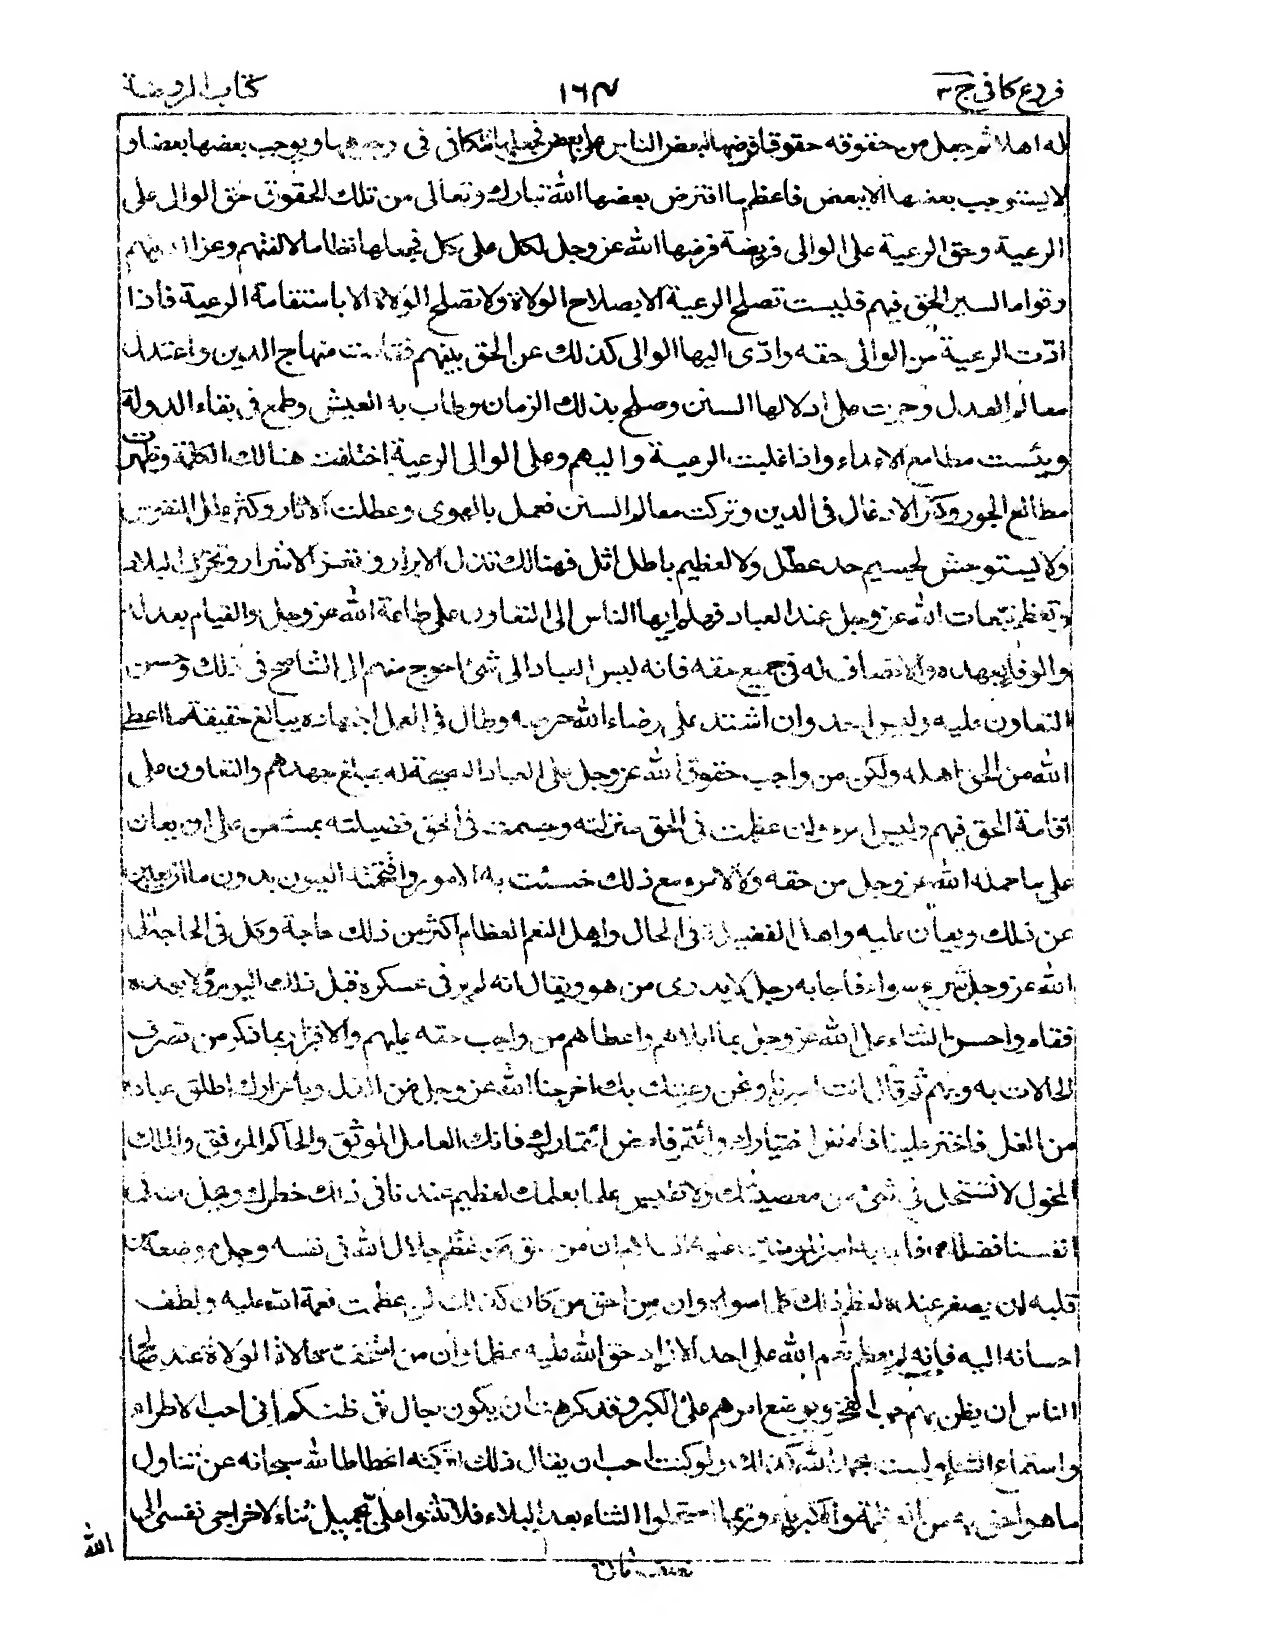 فروع كافی ج ٣ ١٦٤ كتاب الروضة
له اهلا ثم جعل من حقوقه حقوقا فرضها لبعض الناس على بعض فجعلها تتكافى فى وجوهها ويوجب بعضها بعضا و
لا يستوجب بعضها الا ببعض فاعظم ما افترض بعضها الله تبارك وتعالى من تلك الحقوق حق الوالى على
الرعية وحق الرعية على الوالى فريضة فرضها الله عز وجل لكل على كل فجعلها نظاما لالفتهم وعزا لدينهم
وقواما لسير الحق فيهم فليست تصلح الرعية الا بصلاح الولاة ولا تصلح الولاة الا باستقامة الرعية فاذا
ادّت الرعية من الوالى حقه وادّى اليها الوالى كذلك عن الحق بينهم فقامت منهاج الدين واعتدلت
معالم العدل وجرت على اذلالها السنن وصلح بذلك الزمان وطاب به العيش وطمع فى بقاء الدولة
ويئست مطامع الاعداء واذا غلبت الرعية واليهم وعلى الوالى الرعية اختلفت هنالك الكلمة وظهرت
مطامع الجور وكثر الادغال فى الدين وتركت معالم السنن فعمل بالهوى وعطلت الاثار وكثر علل النفوس
ولا يستوحش لجسيم حد عطّل ولا لعظيم باطل اثل فهنالك تذل الابرار وتعز الاشرار وتخرب البلاد
وتعظم تبعات الله عز وجل عند العباد فهلم ايها الناس الى التعاون على طاعة الله عز وجل والقيام بعدله
والوفاء بعهده والانصاف له فى جميع حقه فانه ليس العباد الى شئ احوج منهم الى التناصح فى ذلك وحسن
التعاون عليه وليس احد وان اشتد على رضاء الله حرصه وطال فى العمل اجتهاده ببالغ حقيقة ما اعطى
الله من الحق اهله ولكن من واجب حقوق الله عز وجل على العباد النصيحة له بمبلغ جهدهم والتعاون على
اقامة الحق فيهم وليس امرء وان عظمت فى الحق منزلته وجسمت فى الحق فضيلته بمستغن على ان يعان
على ما حمله الله عز وجل من حقه ولا لامرء مع ذلك خسئت به الامور واقتحمته العيون بدون ما ان يعين
عن ذلك ويعان عليه واهل الفضيلة فى الحال واهل النعم العظام اكثر من ذلك حاجة وكل فى الحاجة الى
الله عز وجل شرع سواء فاجابه رجل لا يدرى من هو ويقال انه لم ير فى عسكره قبل ذلك اليوم ولا بعده
فقام واحسن الثناء على الله عز وجل بما ابلاهم واعطاهم من واجب حقه عليهم والاقرار بما ذكر من تصرف
الحالات به وبهم ثم قال انت اميرنا ونحن رعيتك بك اخرجنا الله عز وجل من الذل وباعزازك اطلق عباده
من الغل فاختر علينا فامض اختيارك وائتمر فامض ائتمارك فانك العامل الموثق والحاكم الموفق والملك
المخول لا نستحل فى شئ من معصيتك ولا نقيس علما بعلمك لعظيم عندنا فى ذلك خطرك وجل عنه فى
انفسنا فضلك فاجابه امير المؤمنين عليه السلام ان من حق من عظم جلال الله فى نفسه وجل موضعه من
قلبه ان يصغر عنده لعظم ذلك كلما سواه وان من احق من كان كذلك لمن عظمت نعمة الله عليه ولطف
احسانه اليه فانه لم يعظم نعم الله على احد الا زاد حق الله عليه عظما وان من اسخف حالات الولاة عند صالح
الناس ان يظن بهم حب الفخر ويوضع امرهم على الكبر وقد كرهت ان يكون جال فى ظنكم انى احب الاطراء
واستماع الثناء ولست بحمد الله كذلك ولو كنت احب ان يقال ذلك لتركته انحطاطا لله سبحانه عن تناول
ما هو احق به من العظمة والكبرياء وربما استحلوا الثناء بعد البلاء فلا تثنوا علىّ بجميل ثناء لاخراجى نفسى الى
الله